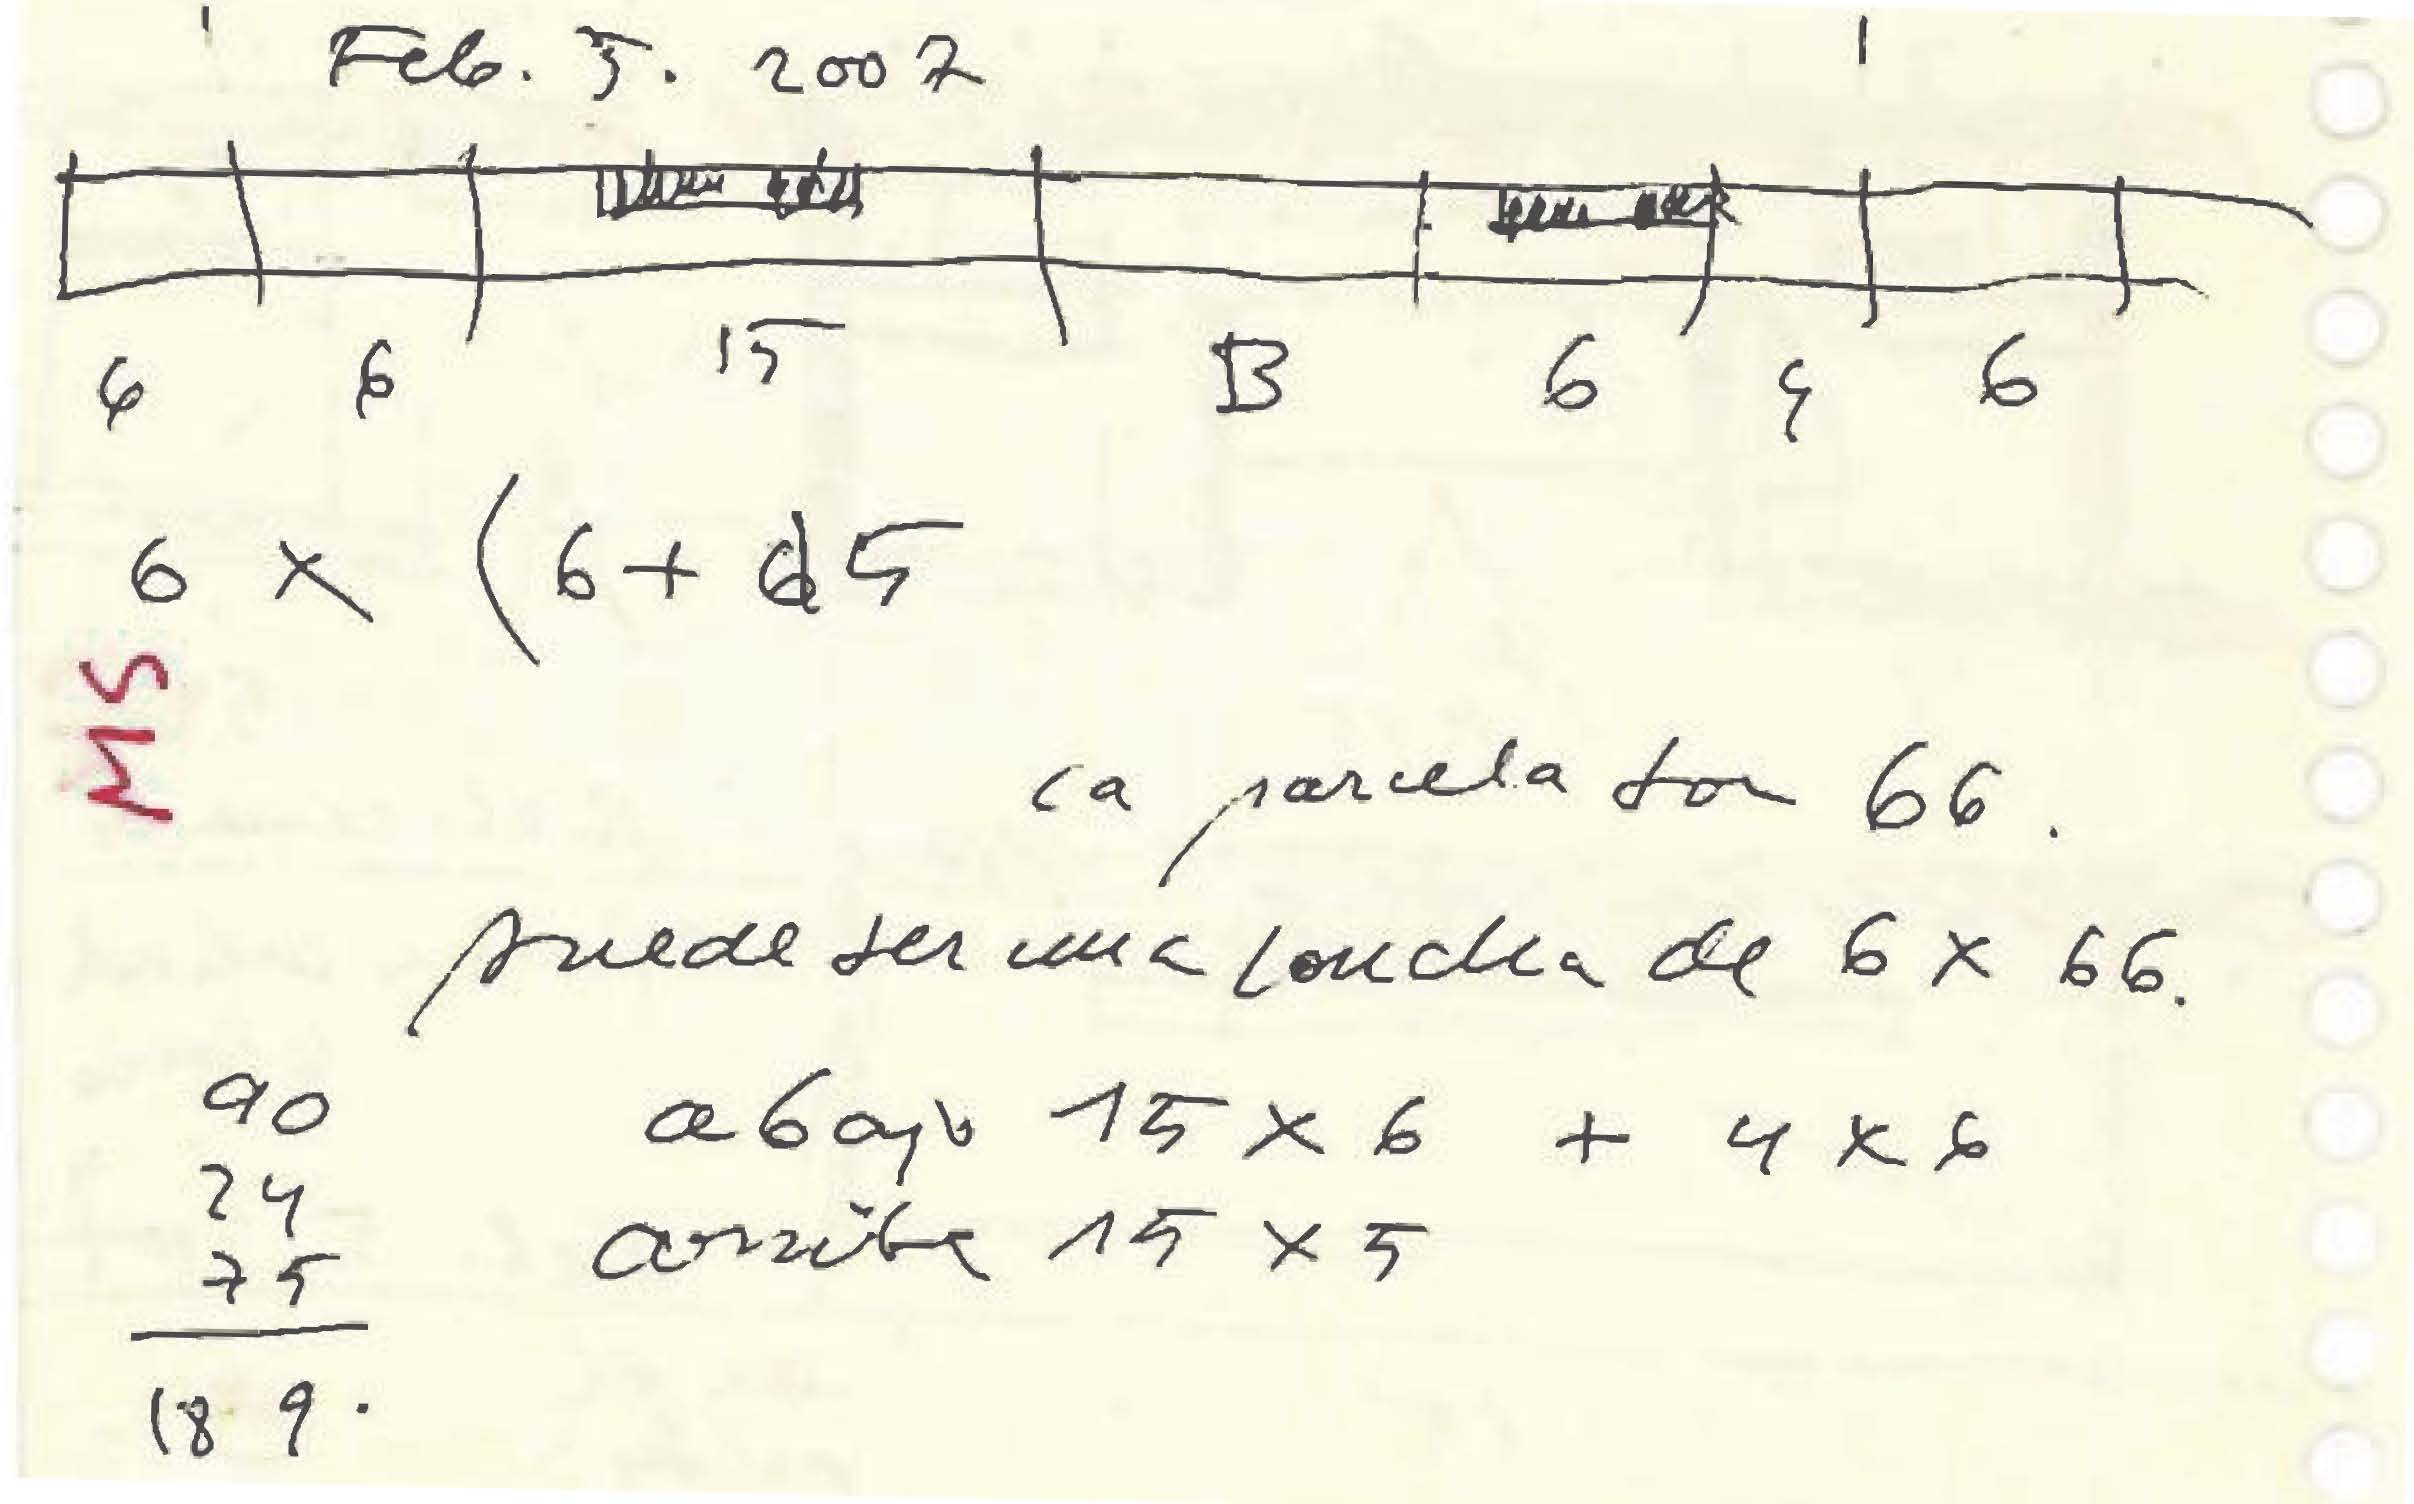 Feb. 5. 2007
6 6 15 B 6 4 6
6 x (6+ 5
MS
la parcela son 66.
puede ser una loncha de 6 x 66.
90 abajo 15 x 6 + 4 x 6
24
75 arriba 15 x 5
189.